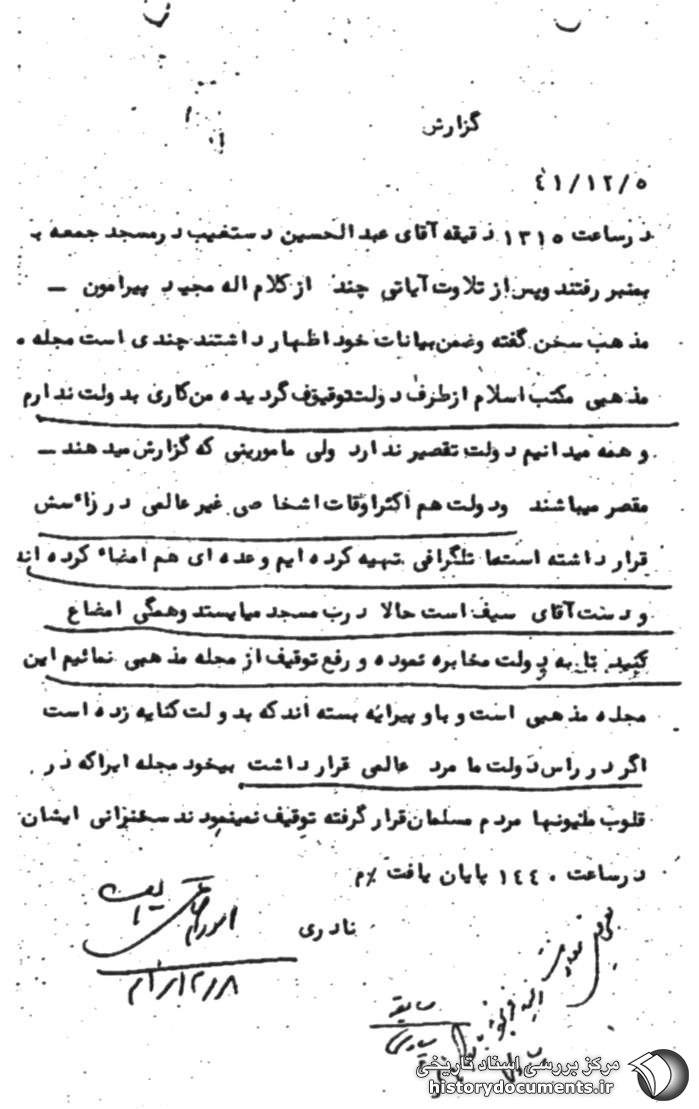 گزارش
٤١/١٢/٥
در ساعت ١٣١٥ دقیقه آقای عبد الحسین دستغیب در مسجد جمعه ب
بمنبر رفتند و پس از تلاوت آیاتی چند از کلام اله مجید پیرامون –
مذهب سخن گفته و ضمن بیانات خود اظهار داشتند چندی است مجله
مذهبی مکتب اسلام از طرف دولت توقیف گردیده من کاری بدولت ندارم
و همه میدانیم دولت تقصیر ندارد ولی مامورینی که گزارش میدهند –
مقصر میباشند و دولت هم اکثر اوقات اشخاصی غیر عالمی در راسش
قرار داشته است ما تلگرافی تهیه کرده ایم و عده ای هم امضاء کرده اند
و دست آقای سیف است حالا درب مسجد میایستد و همگی امضاع
کنید تا به دولت مخابره نموده و رفع توقیف از مجله مذهبی نمائیم این
مجله مذهبی است و باو پیرایه بسته اند که بدولت کنایه زده است
اگر در راس دولت ما مرد عالمی قرار داشت بیخود مجله ایرا که در
قلوب ملیونها مردم مسلمان قرار گرفته توقیف نمینمودند سخنرانی ایشان
در ساعت ١٤٤٠ پایان یافت ٪م
نادری
سابقه
مرکز بررسی اسناد تاریخی
historydocuments.ir